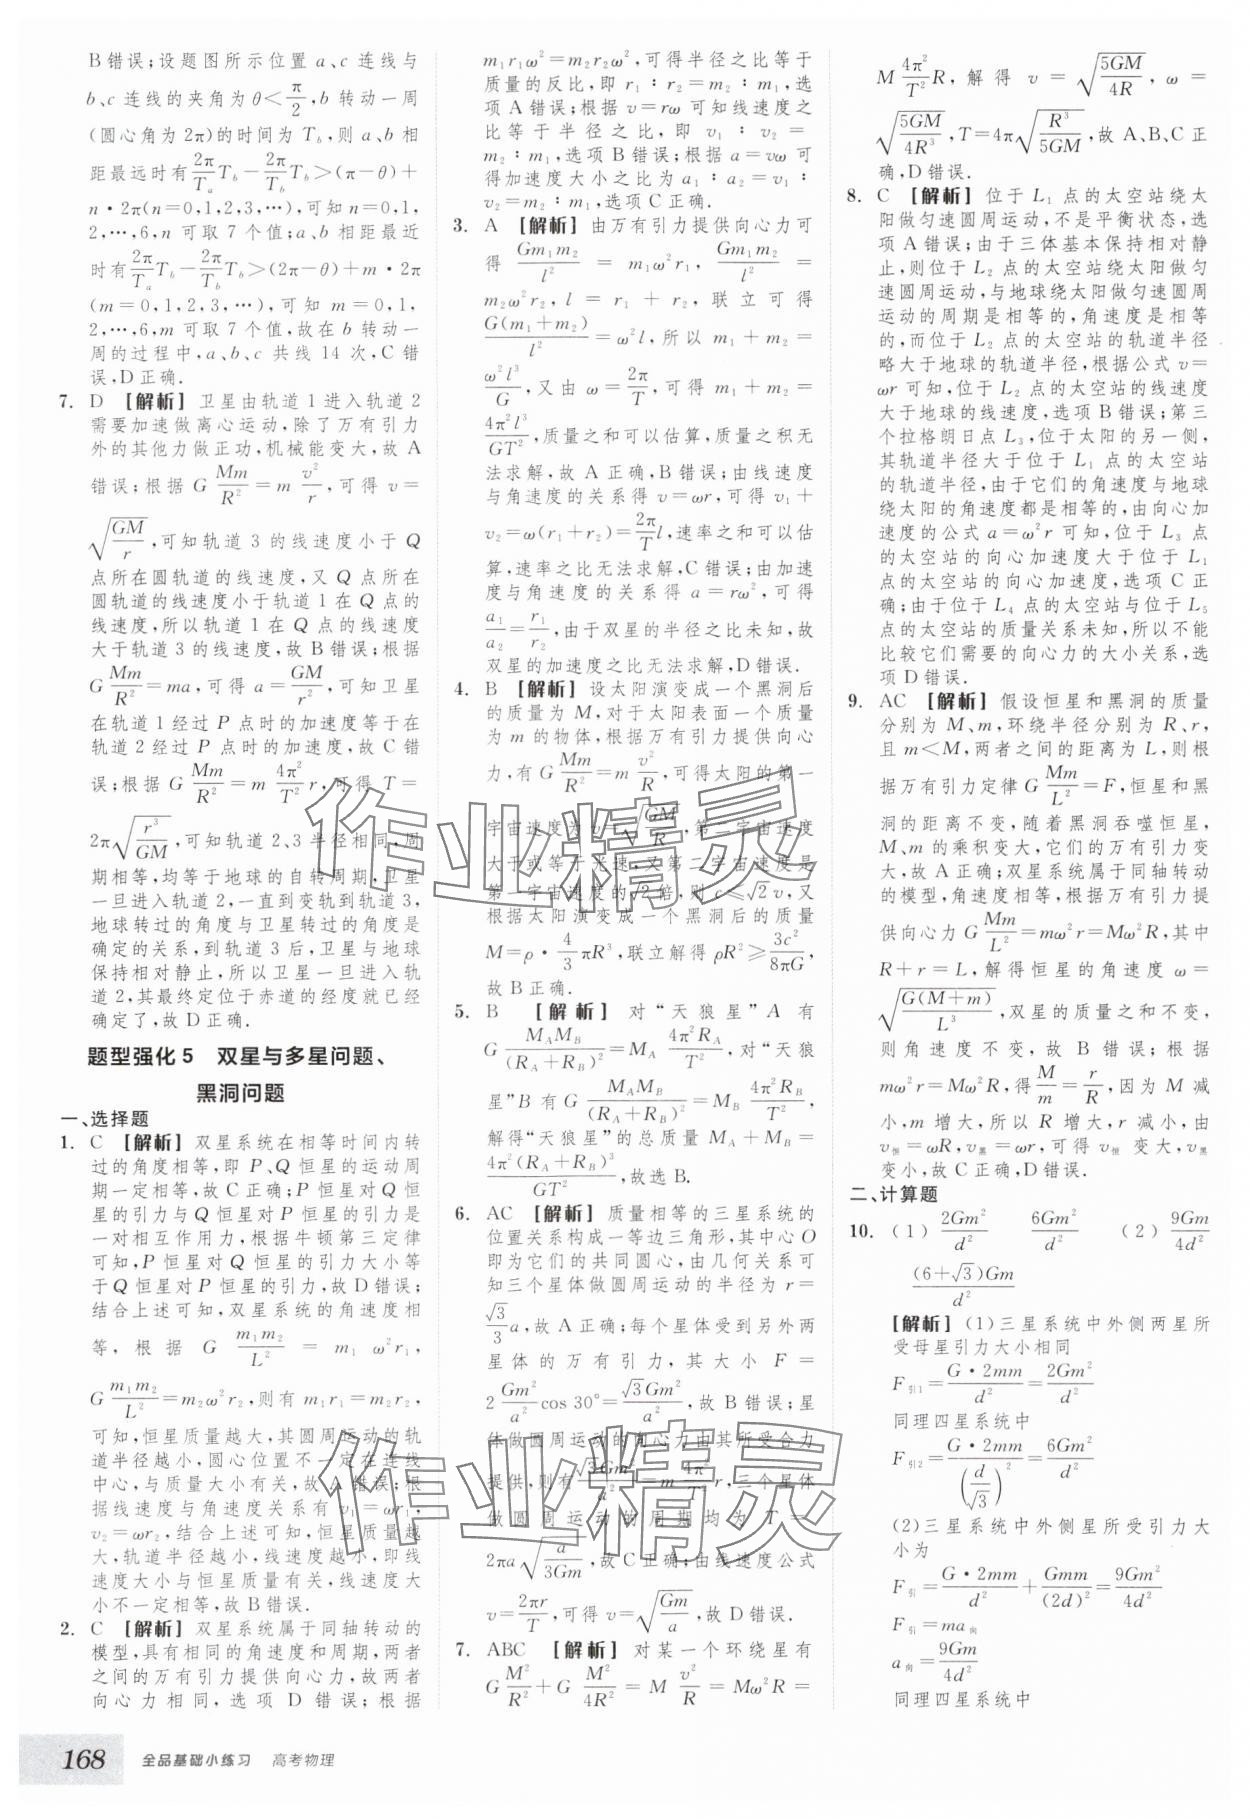 B错误;设题图所示位置 a、c 连线与
b、c 连线的夹角为 θ<π/2,b 转动一周
(圆心角为 2π)的时间为 T_b,则 a、b 相
距最远时有 2π/T_a T_b−2π/T_b T_b>(π−θ)+
n·2π(n=0,1,2,3,…),可知 n=0,1,
2,…,6,n 可取 7 个值;a、b 相距最近
时有 2π/T_a T_b−2π/T_b T_b>(2π−θ)+m·2π
(m=0,1,2,3,…),可知 m=0,1,
2,…,6,m 可取 7 个值,故在 b 转动一
周的过程中,a、b、c 共线 14 次,C 错
误,D 正确.
7. D [解析] 卫星由轨道 1 进入轨道 2
需要加速做离心运动,除了万有引力
外的其他力做正功,机械能变大,故 A
错误;根据 G Mm/R²=m v²/r,可得 v=
√(GM/r),可知轨道 3 的线速度小于 Q
点所在圆轨道的线速度,又 Q 点所在
圆轨道的线速度小于轨道 1 在 Q 点的
线速度,所以轨道 1 在 Q 点的线速度
大于轨道 3 的线速度,故 B 错误;根据
G Mm/R²=ma,可得 a=GM/r²,可知卫星
在轨道 1 经过 P 点时的加速度等于在
轨道 2 经过 P 点时的加速度,故 C 错
误;根据 G Mm/R²=m 4π²/T² r,可得 T=
2π√(r³/GM),可知轨道 2、3 半径相同,周
期相等,均等于地球的自转周期,卫星
一旦进入轨道 2,一直到变轨到轨道 3,
地球转过的角度与卫星转过的角度是
确定的关系,到轨道 3 后,卫星与地球
保持相对静止,所以卫星一旦进入轨
道 2,其最终定位于赤道的经度就已经
确定了,故 D 正确.
题型强化 5 双星与多星问题、
黑洞问题
一、选择题
1. C [解析] 双星系统在相等时间内转
过的角度相等,即 P、Q 恒星的运动周
期一定相等,故 C 正确;P 恒星对 Q 恒
星的引力与 Q 恒星对 P 恒星的引力是
一对相互作用力,根据牛顿第三定律
可知,P 恒星对 Q 恒星的引力大小等
于 Q 恒星对 P 恒星的引力,故 D 错误;
结合上述可知,双星系统的角速度相
等,根据 G m₁m₂/L² = m₁ω²r₁,
G m₁m₂/L²=m₂ω²r₂,则有 m₁r₁=m₂r₂,
可知,恒星质量越大,其圆周运动的轨
道半径越小,圆心位置不一定在连线
中心,与质量大小有关,故 A 错误;根
据线速度与角速度关系有 v₁=ωr₁,
v₂=ωr₂,结合上述可知,恒星质量越
大,轨道半径越小,线速度越小,即线
速度大小与恒星质量有关,线速度大
小不一定相等,故 B 错误.
2. C [解析] 双星系统属于同轴转动的
模型,具有相同的角速度和周期,两者
之间的万有引力提供向心力,故两者
向心力相同,选项 D 错误;根据
m₁r₁ω²=m₂r₂ω²,可得半径之比等于
质量的反比,即 r₁∶r₂=m₂∶m₁,选
项 A 错误;根据 v=rω 可知线速度之
比等于半径之比,即 v₁∶v₂=
m₂∶m₁,选项 B 错误;根据 a=vω 可
得加速度大小之比为 a₁∶a₂=v₁∶
v₂=m₂∶m₁,选项 C 正确.
3. A [解析] 由万有引力提供向心力可
得 Gm₁m₂/l² = m₁ω²r₁, Gm₁m₂/l² =
m₂ω²r₂,l = r₁ + r₂,联立可得
G(m₁+m₂)/l²=ω²l,所以 m₁+m₂=
ω²l³/G,又由 ω=2π/T,可得 m₁+m₂=
4π²l³/GT²,质量之和可以估算,质量之积无
法求解,故 A 正确,B 错误;由线速度
与角速度的关系得 v=ωr,可得 v₁+
v₂=ω(r₁+r₂)=2π/T l,速率之和可以估
算,速率之比无法求解,C 错误;由加速
度与角速度的关系得 a=rω²,可得
a₁/a₂=r₁/r₂,由于双星的半径之比未知,故
双星的加速度之比无法求解,D 错误.
4. B [解析] 设太阳演变成一个黑洞后
的质量为 M,对于太阳表面一个质量
为 m 的物体,根据万有引力提供向心
力,有 G Mm/R²=m v²/R,可得太阳的第一
宇宙速度为 v=√(GM/R),第二宇宙速度
大于或等于光速,又第二宇宙速度是
第一宇宙速度的√2倍,则 c≤√2 v,又
根据太阳演变成一个黑洞后的质量
M=ρ·4/3 πR³,联立解得 ρR²≥3c²/8πG,
故 B 正确.
5. B [解析] 对“天狼星”A 有
G M_A M_B/(R_A+R_B)²=M_A 4π²R_A/T²,对“天狼
星”B 有 G M_A M_B/(R_A+R_B)²=M_B 4π²R_B/T²,
解得“天狼星”的总质量 M_A+M_B=
4π²(R_A+R_B)³/GT²,故选 B.
6. AC [解析] 质量相等的三星系统的
位置关系构成一等边三角形,其中心 O
即为它们的共同圆心,由几何关系可
知三个星体做圆周运动的半径为 r=
√3/3 a,故 A 正确;每个星体受到另外两
星体的万有引力,其大小 F=
2 Gm²/a² cos 30°=√3Gm²/a²,故 B 错误;星
体做圆周运动的向心力由其所受合力
提供,则有 √3Gm²/a²=m 4π²/T² r,三个星体
做圆周运动的周期均为 T=
2πa√(a/3Gm),故 C 正确;由线速度公式
v=2πr/T,可得 v=√(Gm/a),故 D 错误.
7. ABC [解析] 对某一个环绕星有
G M²/R²+G M²/4R² = M v²/R = Mω²R =
M 4π²/T² R,解得 v=√(5GM/4R),ω=
√(5GM/4R³),T=4π√(R³/5GM),故 A、B、C 正
确,D 错误.
8. C [解析] 位于 L₁ 点的太空站绕太
阳做匀速圆周运动,不是平衡状态,选
项 A 错误;由于三体基本保持相对静
止,则位于 L₂ 点的太空站绕太阳做匀
速圆周运动,与地球绕太阳做匀速圆周
运动的周期是相等的,角速度是相等
的,而位于 L₂ 点的太空站的轨道半径
略大于地球的轨道半径,根据公式 v=
ωr 可知,位于 L₂ 点的太空站的线速度
大于地球的线速度,选项 B 错误;第三
个拉格朗日点 L₃,位于太阳的另一侧,
其轨道半径大于位于 L₁ 点的太空站
的轨道半径,由于它们的角速度与地球
绕太阳的角速度都是相等的,由向心加
速度的公式 a=ω²r 可知,位于 L₃ 点
的太空站的向心加速度大于位于 L₁
点的太空站的向心加速度,选项 C 正
确;由于位于 L₄ 点的太空站与位于 L₅
点的太空站的质量关系未知,所以不能
比较它们需要的向心力的大小关系,选
项 D 错误.
9. AC [解析] 假设恒星和黑洞的质量
分别为 M、m,环绕半径分别为 R、r,
且 m<M,两者之间的距离为 L,则根
据万有引力定律 G Mm/L²=F,恒星和黑
洞的距离不变,随着黑洞吞噬恒星,
M、m 的乘积变大,它们的万有引力变
大,故 A 正确;双星系统属于同轴转动
的模型,角速度相等,根据万有引力提
供向心力 G Mm/L²=mω²r=Mω²R,其中
R+r=L,解得恒星的角速度 ω=
√(G(M+m)/L³),双星的质量之和不变,
则角速度不变,故 B 错误;根据
mω²r=Mω²R,得 M/m=r/R,因为 M 减
小,m 增大,所以 R 增大,r 减小,由
v恒=ωR,v黑=ωr,可得 v恒 变大,v黑
变小,故 C 正确,D 错误.
二、计算题
10. (1) 2Gm²/d² 6Gm²/d² (2) 9Gm/4d²
(6+√3)Gm/d²
[解析] (1)三星系统中外侧两星所
受母星引力大小相同
F引1=G·2mm/d²=2Gm²/d²
同理四星系统中
F引2=G·2mm/(d/√3)²=6Gm²/d²
(2)三星系统中外侧星所受引力大
小为
F引=G·2mm/d²+Gmm/(2d)²=9Gm²/4d²
F引=ma向
a向=9Gm/4d²
同理四星系统中
168 全品基础小练习 高考物理
作业精灵
作业精灵